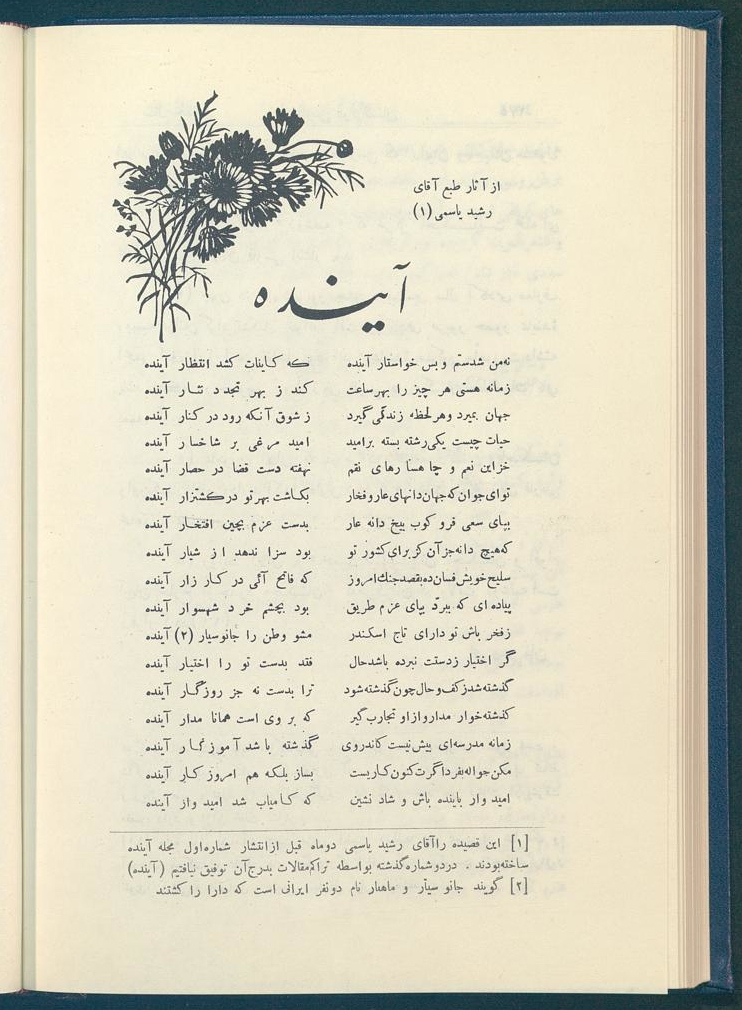 از آثار طبع آقای
رشید یاسمی (۱)
آینده
نه‌من شدستم و بس خواستار آینده که کاینات کشد انتظار آینده
زمانه هستی هر چیز را بهر ساعت کند ز بهر تجدد نثار آینده
جهان بمیرد و هر لحظه زندگی گیرد ز شوق آنکه رود در کنار آینده
حیات چیست یکی رشته بسته بر امید امید مرغی بر شاخسار آینده
خزاین نعم و چاهسارهای نقم نهفته دست قضا در حصار آینده
توای جوان که جهان دانهای عار و فخار بکاشت بهر تو در کشتزار آینده
بپای سعی فرو کوب بیخ دانه عار بدست عزم بچین افتخار آینده
که هیچ دانه جز آن کز برای کشور تو بود سزا ندهد از شیار آینده
سلیح خویش فسان ده بقصد جنك امروز که فاتح آئی در کارزار آینده
پیاده ای که ببرّد بپای عزم طریق بود بچشم خرد شهسوار آینده
ز فخر باش تو دارای تاج اسکندر مشو وطن را جانوسیار (۲) آینده
گر اختیار ز دستت نبرده باشد حال فتد بدست تو را اختیار آینده
گذشته شد ز کف و حال چون گذشته شود ترا بدست نه جز روزگار آینده
گذشته خوار مدار و از او تجارب گیر که بر وی است همانا مدار آینده
زمانه مدرسه‌ای بیش نیست کاندر وی گذشته باشد آموزگار آینده
مکن حواله بفردا گرت کنون کاریست بساز بلکه هم امروز کار آینده
امیدوار باینده باش و شاد نشین که کامیاب شد امیدوار آینده
[۱] این قصیده را آقای رشید یاسمی دو ماه قبل از انتشار شماره اول مجله آینده
ساخته بودند . در دو شماره گذشته بواسطه تراکم مقالات بدرج آن توفیق نیافتیم (آینده)
[۲] گویند جانو سیار و ماهیار نام دو نفر ایرانی است که دارا را کشتند